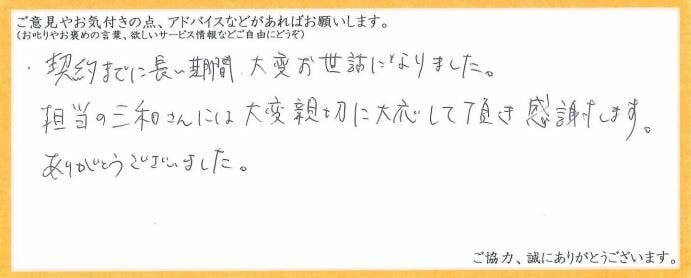 ご意見やお気付きの点、アドバイスなどがあればお願いします。
(お叱りやお褒めの言葉、欲しいサービス情報などご自由にどうぞ)
・契約までに長い期間 大変お世話になりました。
担当の三和さんには大変親切に大応して頂き感謝します。
ありがとうございました。
ご協力、誠にありがとうございます。